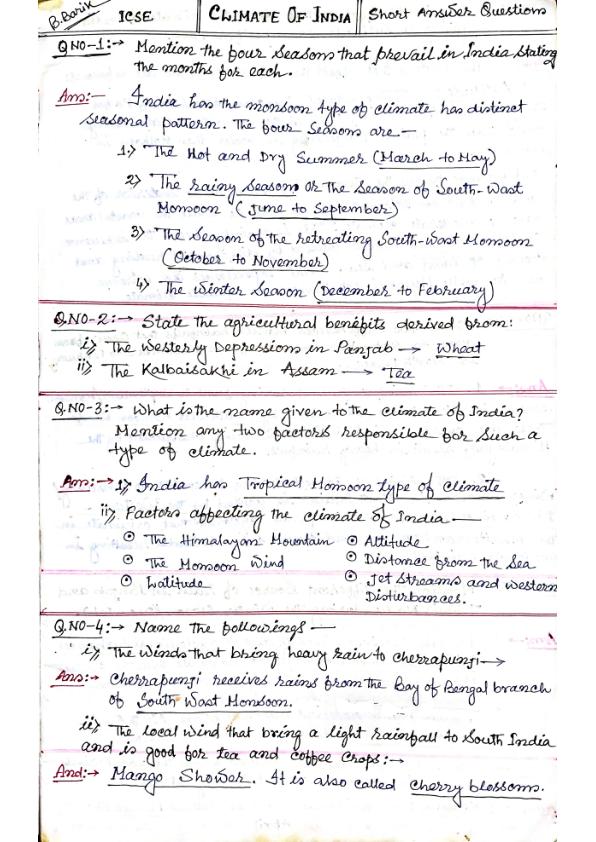 B. Barik ICSE CLIMATE OF INDIA Short Answer Questions
Q NO-1:→ Mention the four seasons that prevail in India stating
the months for each.
Ans:- India has the monsoon type of climate has distinct
seasonal pattern. The four seasons are—
1.> The Hot and Dry Summer (March to May)
2> The rainy season or the season of South-West
Monsoon (June to September)
3> The season of the retreating South-West Monsoon
(October to November)
4> The Winter Season (December to February)
Q.NO-2:→ State the agricultural benefits derived from:
i> The Westerly Depressions in Panjab → Wheat
ii> The Kalbaisakhi in Assam → Tea
Q.NO-3:→ What is the name given to the climate of India?
Mention any two factors responsible for such a
type of climate.
Ans:→ 1> India has Tropical Monsoon type of climate
ii> Factors affecting the climate of India —
⊙ The Himalayan Mountain ⊙ Altitude
⊙ The Monsoon Wind ⊙ Distance from the Sea
⊙ Latitude ⊙ Jet Streams and western
Disturbances.
Q.NO-4:→ Name the followings —
i> The Winds that bring heavy rain to cherrapunji→
Ans:→ Cherrapunji receives rains from the Bay of Bengal branch
of South West Monsoon.
ii> The local wind that bring a light rainfall to South India
and is good for tea and coffee crops:→
And:→ Mango Shower. It is also called cherry blossoms.